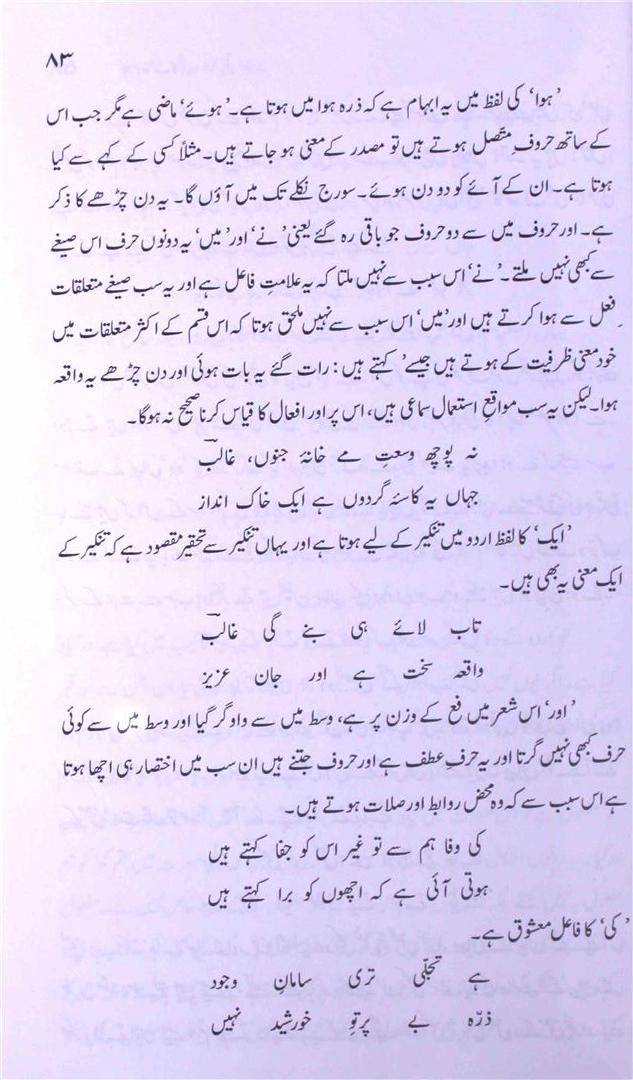 ۸۳
’ہوا‘ کی لفظ میں یہ ابہام ہے کہ ذرہ ہوا میں ہوتا ہے۔ ’ہوئے‘ ماضی ہے مگر جب اس
کے ساتھ حروف متصل ہوتے ہیں تو مصدر کے معنی ہو جاتے ہیں۔ مثلاً کسی کے کہے سے کیا
ہوتا ہے۔ ان کے آئے کو دو دن ہوئے۔ سورج نکلے تک میں آؤں گا۔ یہ دن چڑھے کا ذکر
ہے۔ اور حروف میں سے دو حروف جو باقی رہ گئے یعنی ’نے‘ اور ’میں‘ یہ دونوں حرف اس صیغے
سے کبھی نہیں ملتے۔ ’نے‘ اس سبب سے نہیں ملتا کہ یہ علامتِ فاعل ہے اور یہ سب صیغے متعلقات
فعل سے ہوا کرتے ہیں اور ’میں‘ اس سبب سے نہیں ملحق ہوتا کہ اس قسم کے اکثر متعلقات میں
خود معنی ظرفیت کے ہوتے ہیں جیسے ’ کہتے ہیں: رات گئے یہ بات ہوئی اور دن چڑھے یہ واقعہ
ہوا۔ لیکن یہ سب مواقعِ استعمال سماعی ہیں، اس پر اور افعال کا قیاس کرنا صحیح نہ ہوگا۔
نہ پوچھ وسعتِ مے خانۂ جنوں، غالبؔ
جہاں یہ کاسۂ گردوں ہے ایک خاک انداز
’ایک‘ کا لفظ اردو میں تنکیر کے لیے ہوتا ہے اور یہاں تنکیر سے تحقیر مقصود ہے کہ تنکیر کے
ایک معنی یہ بھی ہیں۔
تاب لائے ہی بنے گی غالبؔ
واقعہ سخت ہے اور جان عزیز
’اور‘ اس شعر میں فع کے وزن پر ہے، وسط میں سے واو گر گیا اور وسط میں سے کوئی
حرف بھی نہیں گرتا اور یہ حرفِ عطف ہے اور حروف جتنے ہیں ان سب میں اختصار ہی اچھا ہوتا
ہے اس سبب سے کہ وہ محض روابط اور صلات ہوتے ہیں۔
کی وفا ہم سے تو غیر اس کو جفا کہتے ہیں
ہوتی آئی ہے کہ اچھوں کو برا کہتے ہیں
’کی‘ کا فاعل معشوق ہے۔
ہے تجلّی تری سامانِ وجود
ذرّہ بے پرتوِ خورشید نہیں